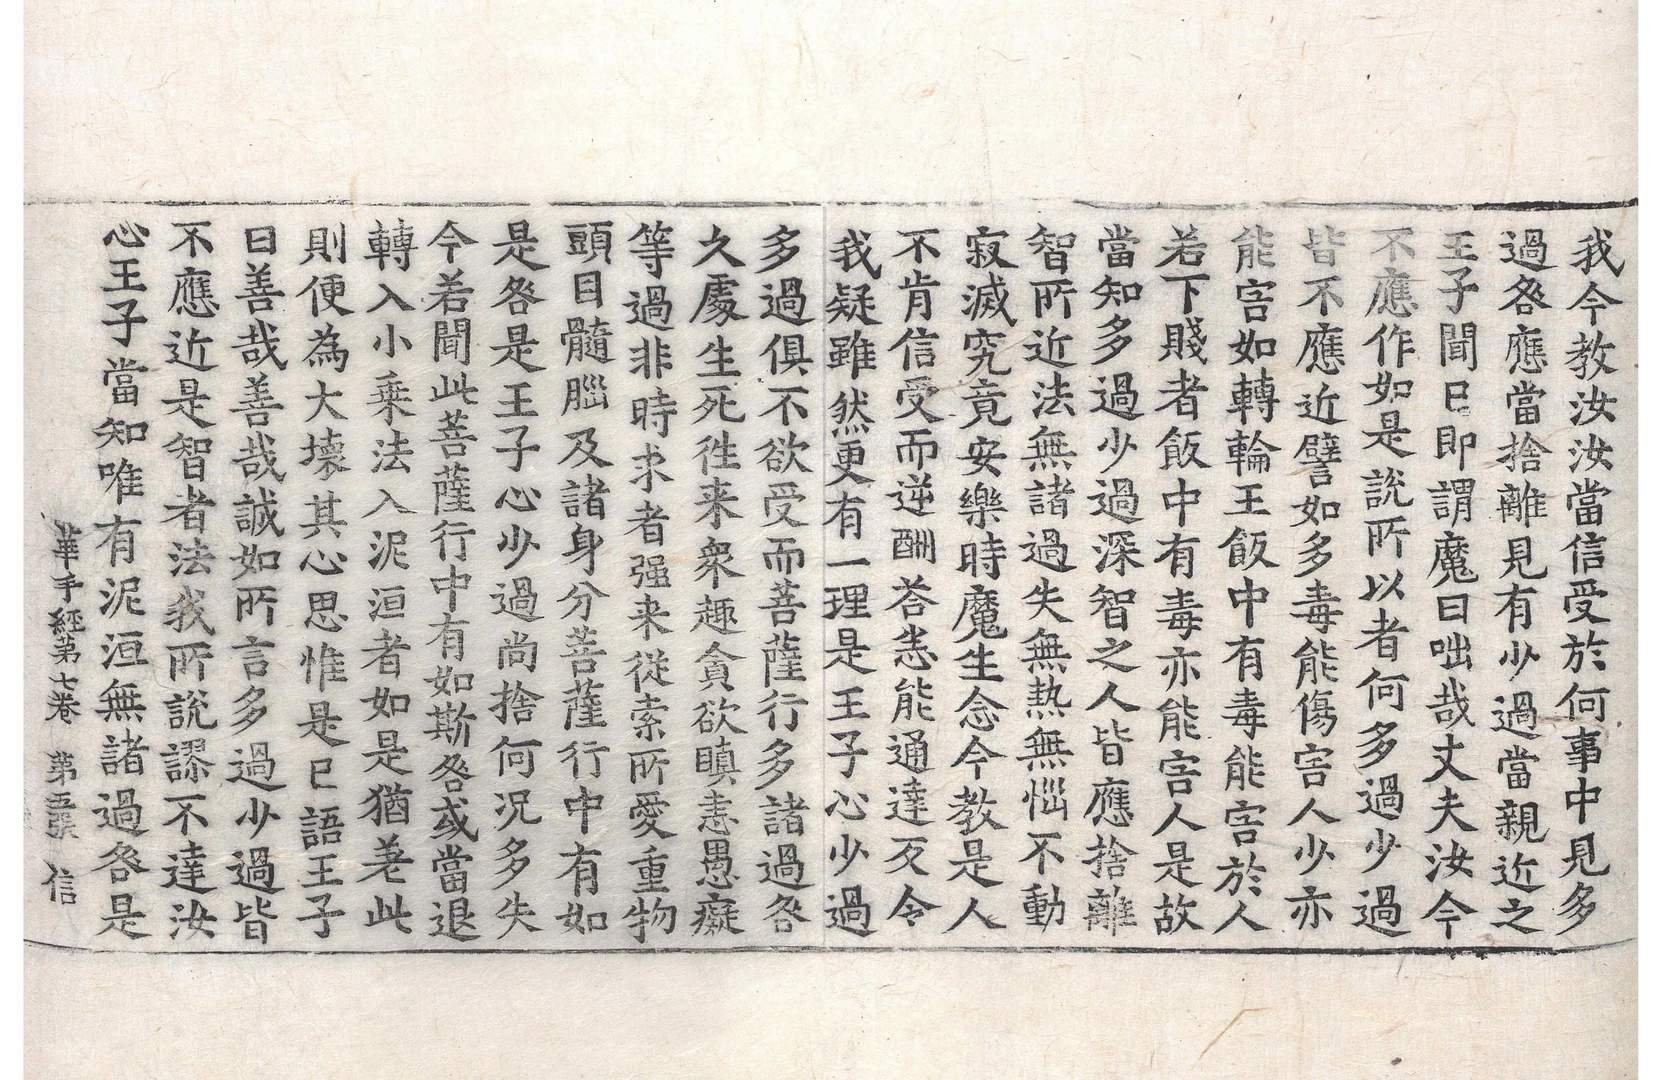 我今教汝汝當信受於何事中見多
過咎應當捨離見有少過當親近之
王子聞已即謂魔曰咄哉丈夫汝今
不應作如是說所以者何多過少過
皆不應近譬如多毒能傷害人少亦
能害如轉輪王飯中有毒能害於人
若下賤者飯中有毒亦能害人是故
當知多過少過深智之人皆應捨離
智所近法無諸過失無熱無惱不動
寂滅究竟安樂時魔生念今教是人
不肯信受而逆酬荅恚能通達反令
我疑雖然更有一理是王子心少過
多過俱不欲受而菩薩行多諸過咎
久處生死徃来衆趣貪欲瞋恚愚癡
等過非時求者强来從索所愛重物
頭目髓腦及諸身分菩薩行中有如
是咎是王子心少過尚捨何況多失
今若聞此菩薩行中有如斯咎或當退
轉入小乗法入泥洹者如是猶差此
則便為大壞其心思惟是已語王子
曰善哉善哉誠如所言多過少過皆
不應近是智者法我所說謬不達汝
心王子當知唯有泥洹無諸過咎是
華手經第七卷　第五張　信